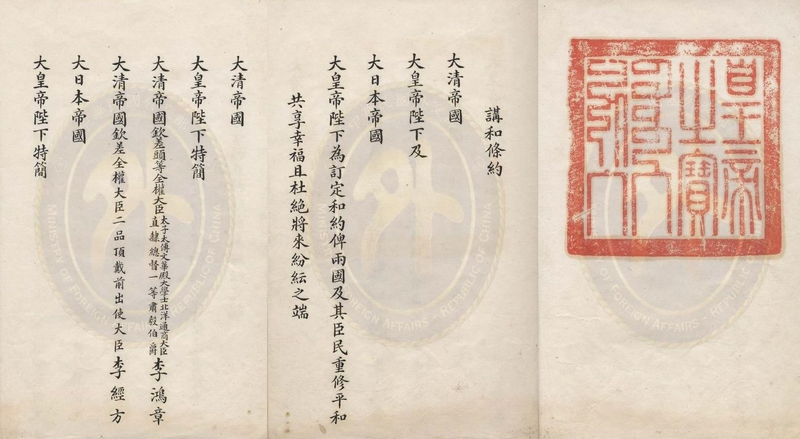 皇帝
之寶
講和條約
大清帝國
大皇帝陛下及
大日本帝國
大皇帝陛下為訂定和約俾兩國及其臣民重修平和
共享幸福且杜絕將來紛紜之端
大清帝國
大皇帝陛下特簡
大清帝國欽差頭等全權大臣太子太傅文華殿大學士北洋通商大臣直隸總督一等肅毅伯爵李鴻章
大清帝國欽差全權大臣二品頂戴前出使大臣李經方
大日本帝國
大皇帝陛下特簡
外
MINISTRY OF FOREIGN AFFAIRS
REPUBLIC OF CHINA